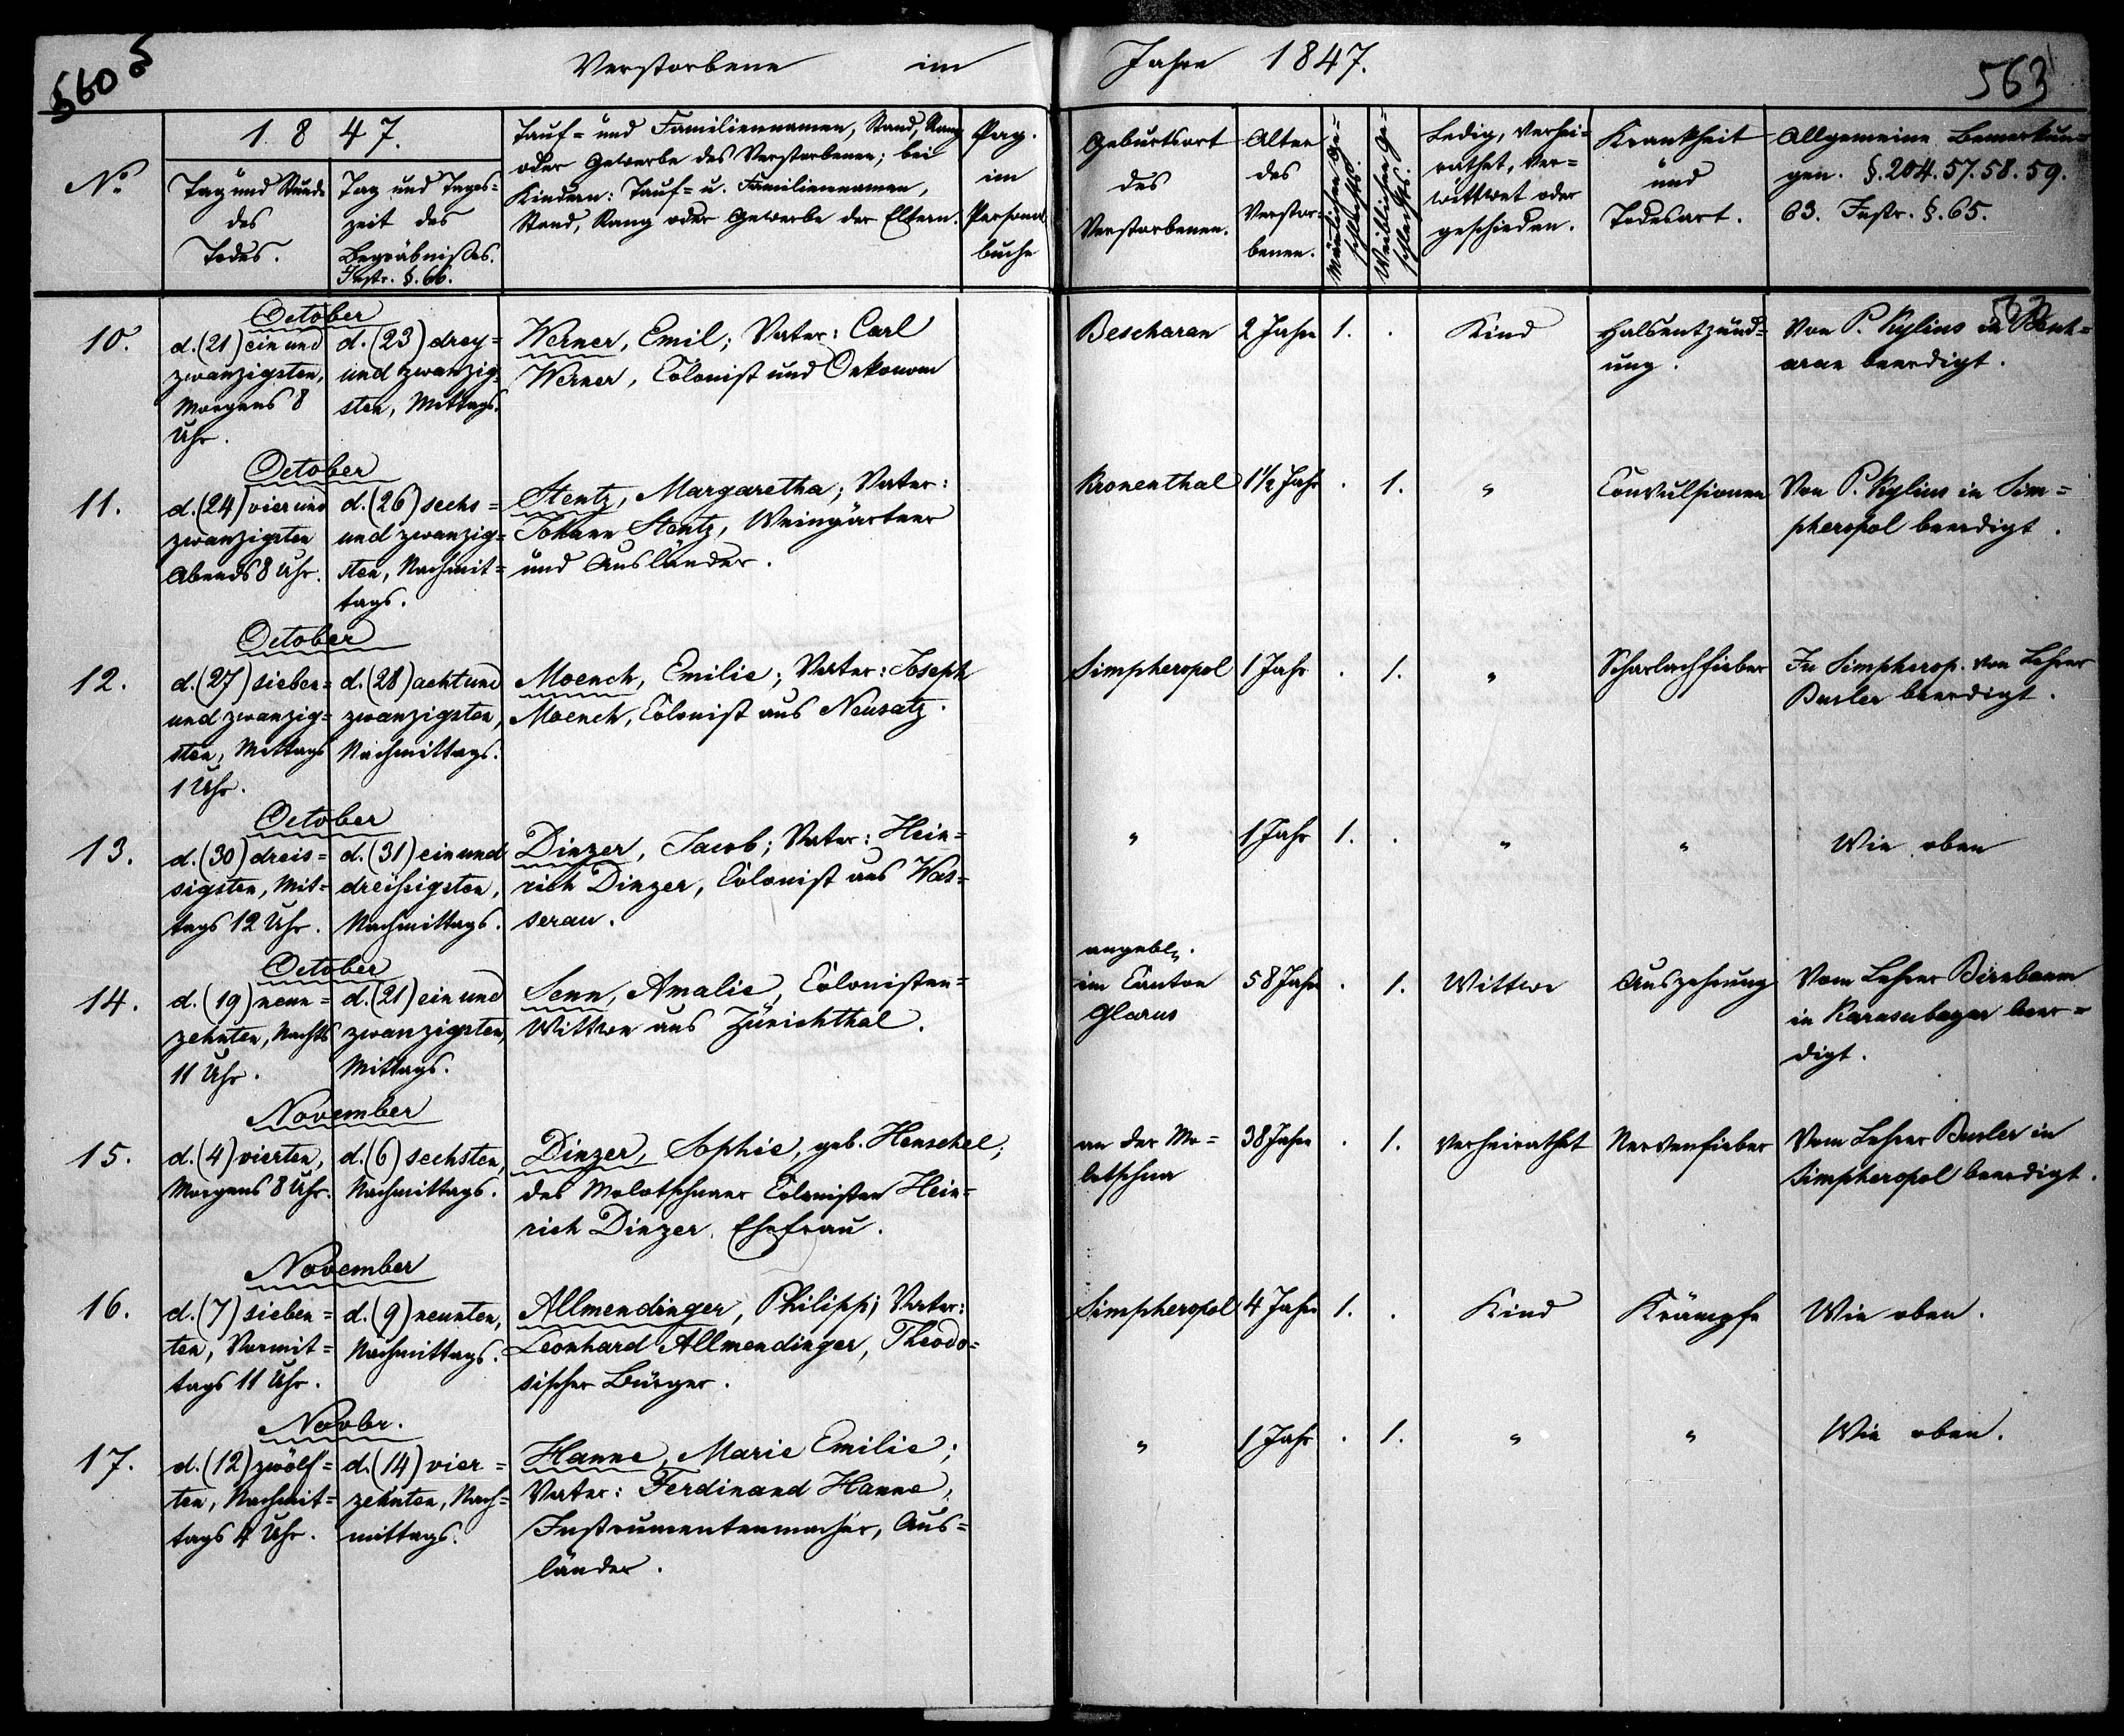 560
Verstorbene im Jahre 1847.
563
No.
1847.
Tag und Stunde
des
Todes.
Tag und Tages=
zeit des
Begräbnißes.
Instr. §. 66.
Tauf= und Familiennamen, Stand, Rang
oder Gewerbe des Verstorbenen; bei
Kindern: Tauf= u. Familiennamen,
Stand, Rang oder Gewerbe der Eltern.
Pag.
im
Personal
buche
Geburtsort
des
Verstorbenen.
Alter
des
Verstor=
benen.
Männlichen Ge=
schlechts.
Weiblichen Ge=
schlechts.
Ledig, verhei=
rathet, ver=
wittwet oder
geschieden.
Krankheit
und
Todesart.
Allgemeine Bemerkun=
gen. §. 204. 57. 58. 59.
63. Instr. §. 65.
10.
October
d. (21) ein und
zwanzigsten,
Morgens 8
Uhr.
d. (23) drey=
und zwanzig=
sten, Mittags.
Werner, Emil; Vater: Carl
Werner, Colonist und Oekonom
Bescharan
2 Jahre
1.
.
Kind
Halsentzünd=
ung.
Von P. Kylius in
aran beerdigt.
11.
October
d. (24) vier und
zwanzigsten
Abends 8 Uhr.
d. (26) sechs=
und zwanzig=
sten, Nachmit=
tags.
Stentz, Margaretha; Vater:
Johann Stentz, Weingärtner
und Ausländer.
Kronenthal
1½ Jahr
.
1.
"
Convulsionen
Von P. Kylius in Sim=
pheropol beerdigt.
12.
October
d. (27) sieben=
und zwanzig=
sten, Mittags
1 Uhr.
d. (28) acht und
zwanzigsten,
Nachmittags.
Moench, Emilie; Vater: Joseph
Moench, Colonist aus Neusatz.
Simpheropol
1 Jahr
.
1.
"
Scharlachfieber
In Simpherop. von Lehrer
Busler beerdigt.
13.
October
d. (30) dreis=
sigsten, Mit=
tags 12 Uhr.
d. (31) ein und
dreißigsten,
Nachmittags.
Dinzer, Jacob; Vater: Hein=
rich Dinzer, Colonist aus Was=
serau.
"
1 Jahr
1.
.
"
"
Wie oben
14.
October
d. (19) neun=
zehnten, Nachts
11 Uhr.
d. (21) ein und
zwanzigsten,
Mittags.
Senn, Amalie, Colonisten=
Wittwe aus Zürichthal.
angebl.
im Canton
Glarus
58 Jahre
.
1.
Wittwe
Auszehrung
Vom Lehrer Birnbaum
in Karasubazar beer=
digt.
15.
November
d. (4) vierten,
Morgens 8 Uhr.
d. (6) sechsten,
Nachmittags.
Dinzer, Sophie, geb. Henschel;
des Molotschnaer Colonisten Hein=
rich Dinzer, Ehefrau.
an der Mo=
lotschna
38 Jahre
.
1.
Verheirathet
Nervenfieber
Vom Lehrer Busler in
Simpheropol beerdigt.
16.
November
d. (7) sieben=
ten, Vormit=
tags 11 Uhr.
d. (9) neunten,
Nachmittags.
Allmendinger, Philipp; Vater:
Leonhard Allmendinger, Theodo=
sischer Bürger.
Simpheropol
4 Jahre
1.
.
Kind
Krämpfe
Wie oben.
17.
Novbr.
d. (12) zwölf=
ten, Nachmit=
tags 4 Uhr.
d. (14) vier=
zehnten, Nach=
mittags.
Hanne, Marie Emilie;
Vater: Ferdinand Hanne,
Instrumentenmacher, Aus=
länder.
"
1 Jahr
.
1.
"
"
Wie oben.